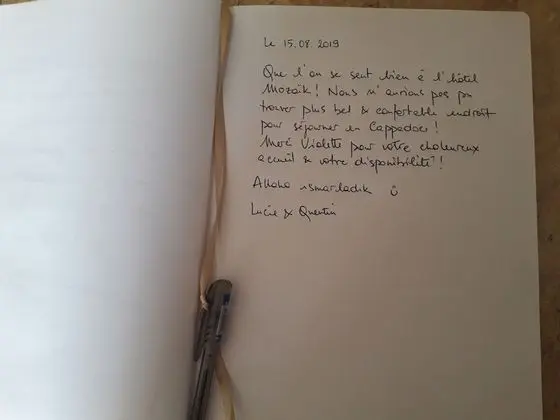 Le 15.08.2019
Que l'on se sent bien à l'hôtel
Mozaïk ! Nous n'aurions pas pu
trouver plus bel & confortable endroit
pour séjourner en Cappadoce !
Merci Violette pour votre chaleureux
accueil & votre disponibilité !
Allaha ısmarladık
Lucie & Quentin